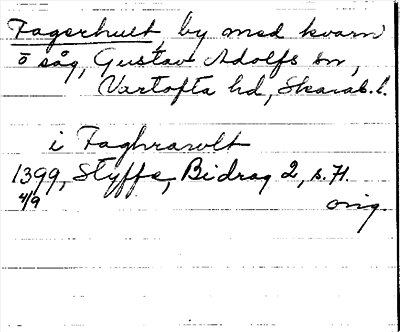 Fagerhult by med kvarn
o såg, Gustav Adolfs sn,
Vartofta hd, Skarab. l.
i Faghrawlt
1399, Styffe, Bidrag 2, s. 71.
4/9 orig.